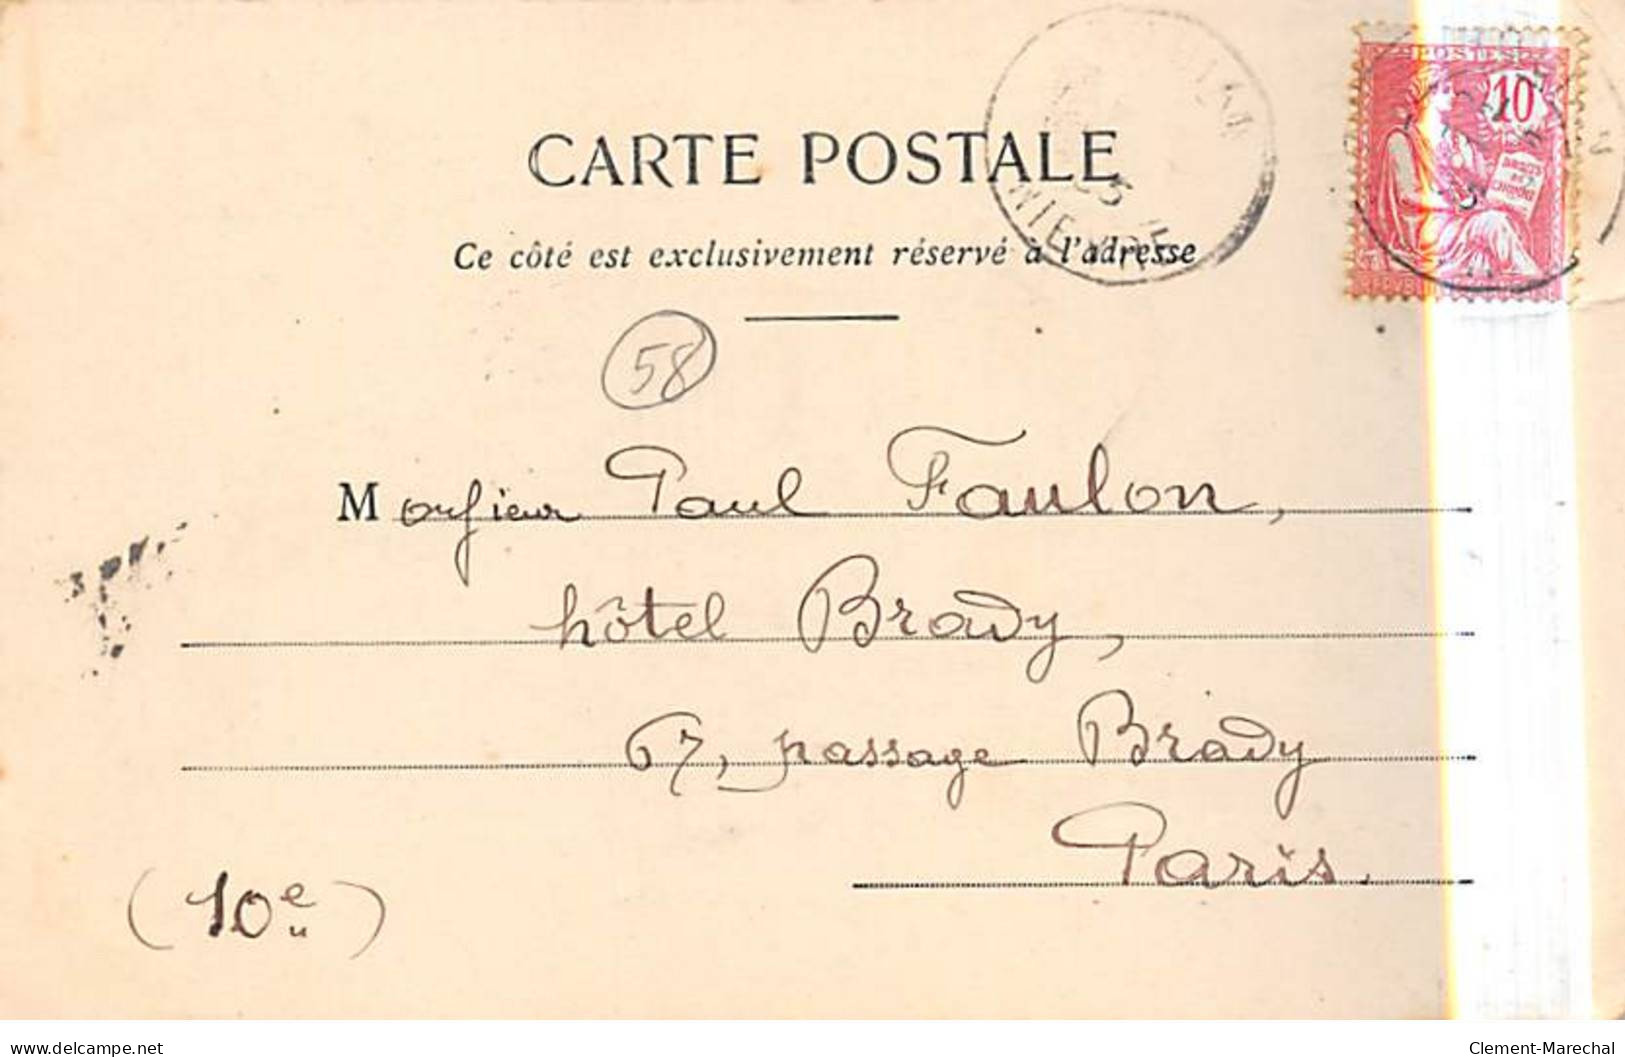 POSTES
10
DROITS
DE
CARTE POSTALE
Ce côté est exclusivement réservé à l'adresse
58
Monsieur Paul Faulon,
hôtel Brady,
67, passage Brady
Paris.
(10e)
delcampe.net
Clement-Marechal